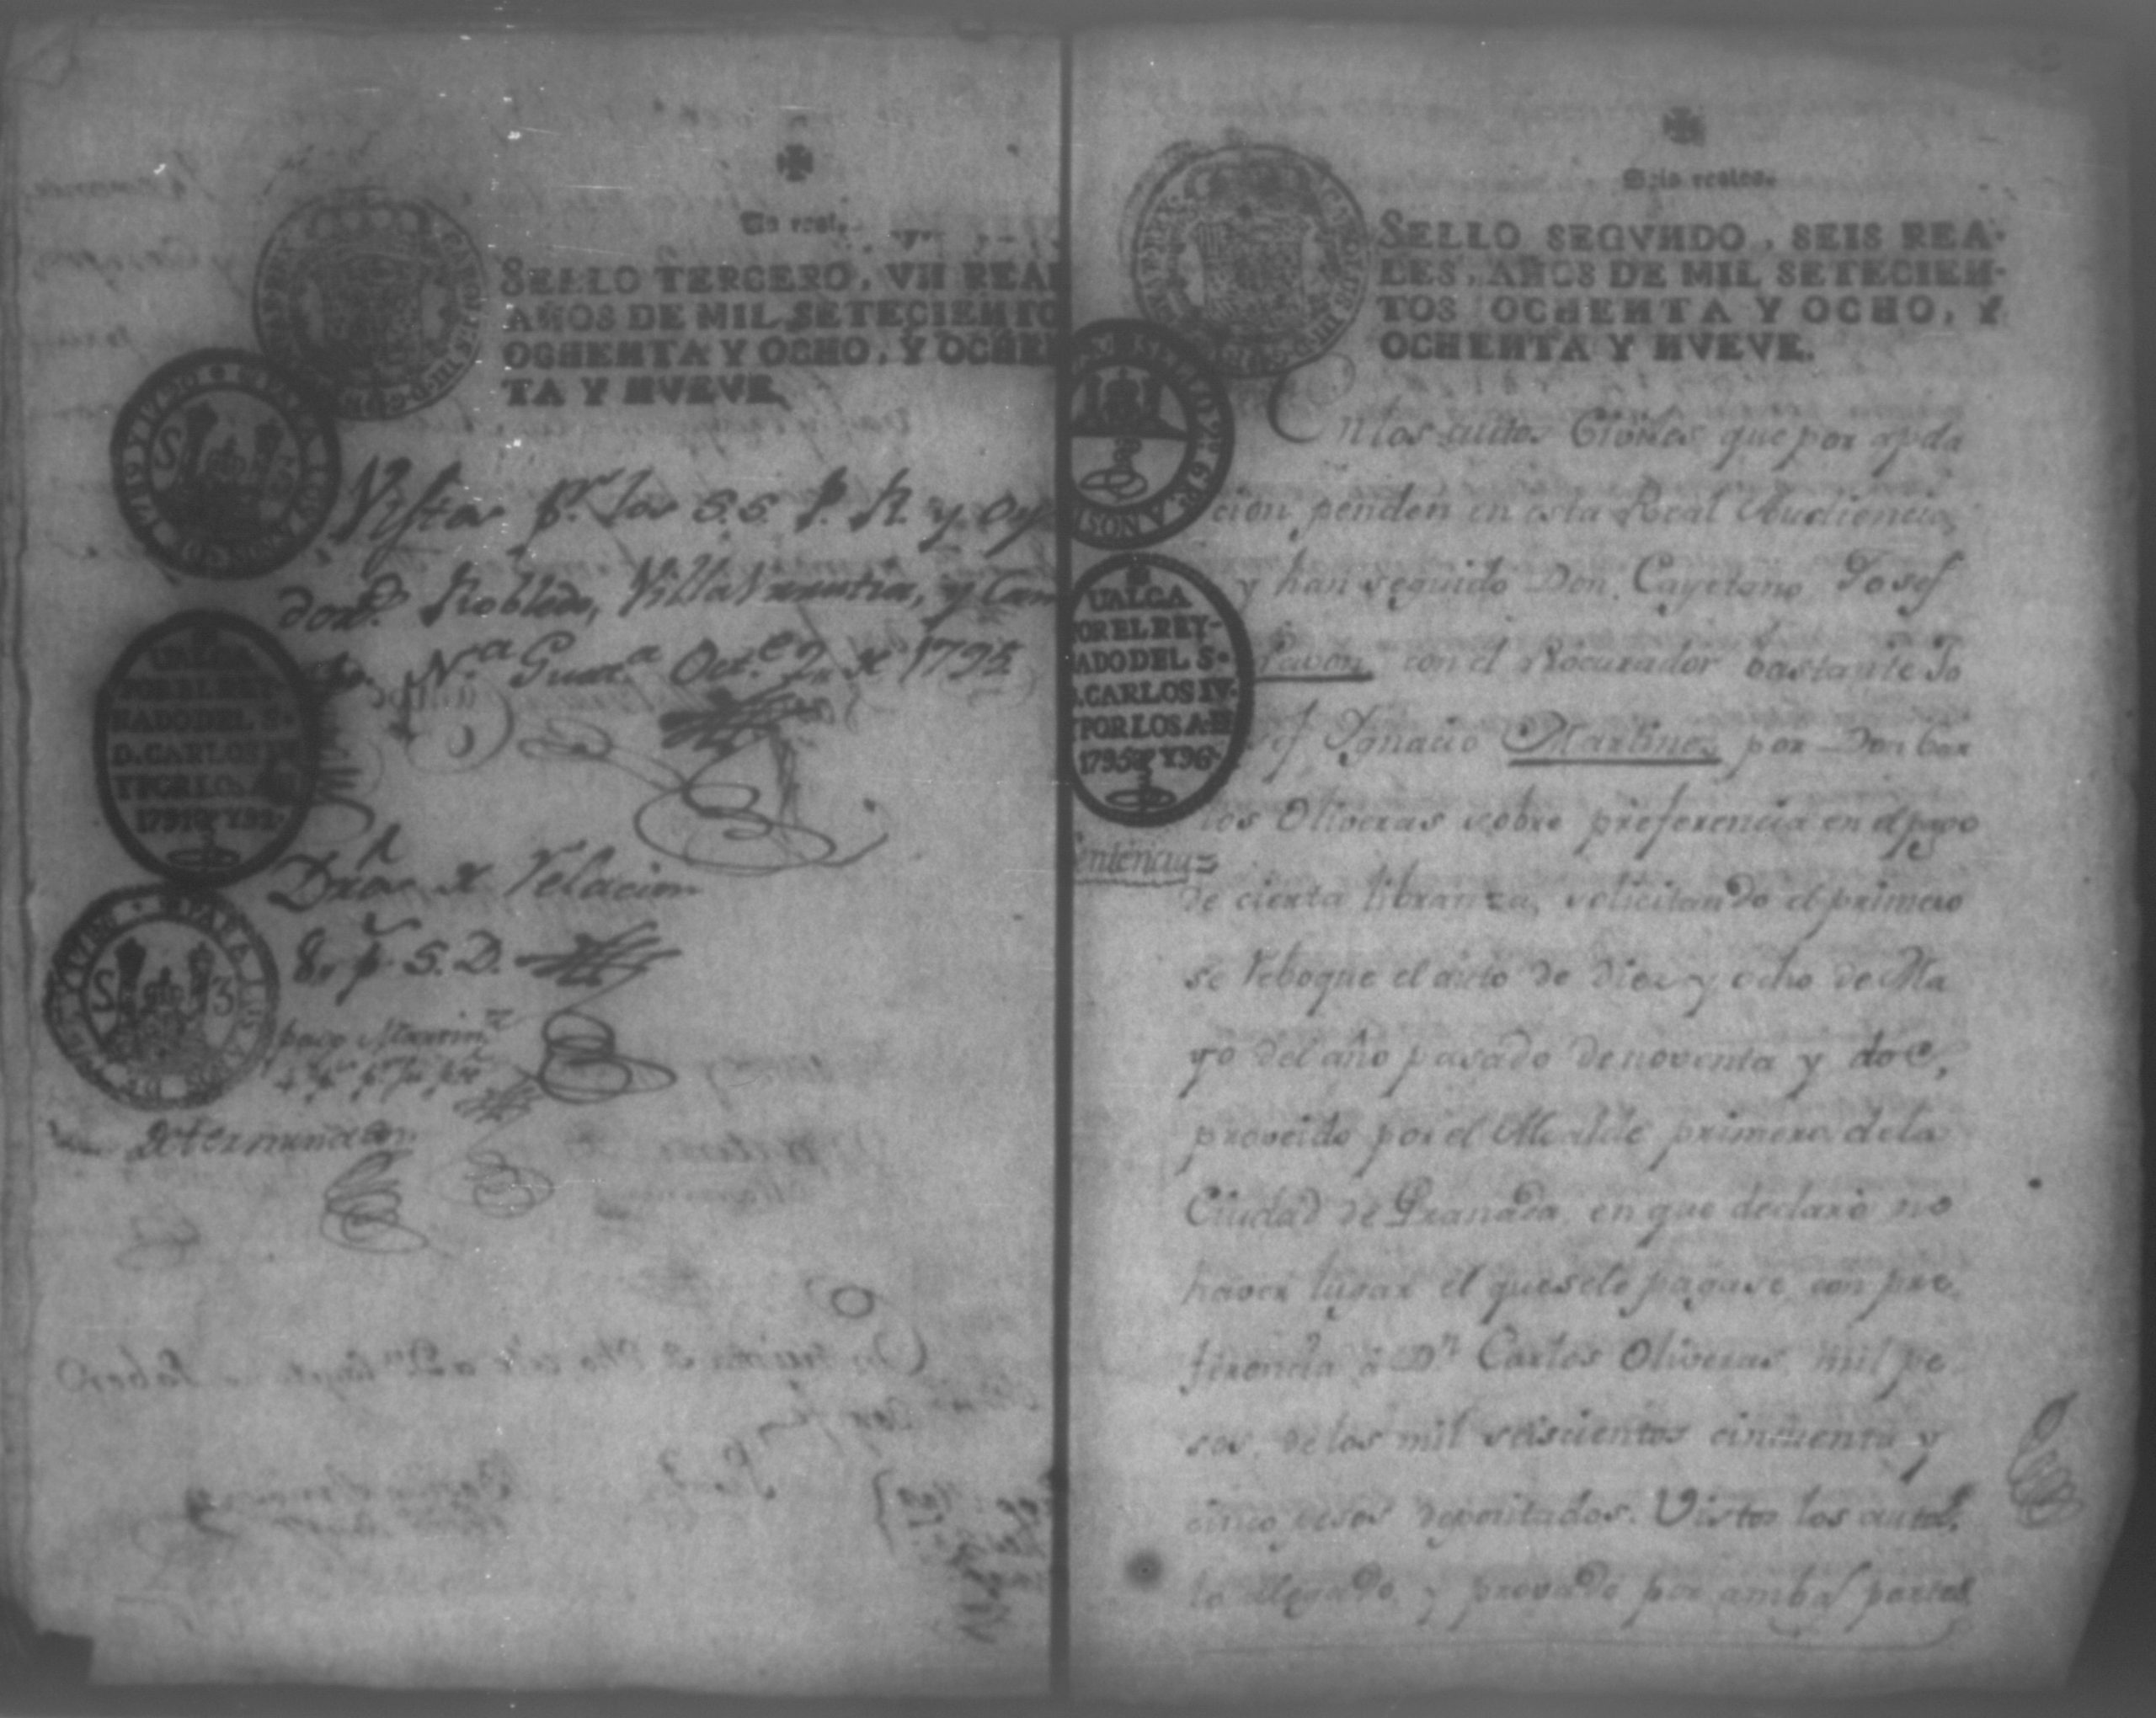 Un real.
SELLO TERCERO, VN REAL
AÑOS DE MIL SETECIENTO
OCHENTA Y OCHO, Y OCHEN
TA Y NVEVE.
Vistos pr. los S.S. P. R. y Oy
dors. Robledo, Villa Vrrutia, y Cam
Na. Guata. Octe. 2 de 1795
VALGA
POR EL REY-
NADO DEL S.
D. CARLOS IV
Y POR LOS A
1791 Y 92.
Dros. de Relacion
8 rs. ps. S. D.
pago Martinz
Determinacion
Seis reales.
SELLO SEGVNDO, SEIS REA-
LES, AÑOS DE MIL SETECIEN-
TOS OCHENTA Y OCHO, Y
OCHENTA Y NVEVE.
VALGA
POR EL REY-
NADO DEL S.
D. CARLOS IV.
Y POR LOS A. D
1795 Y 96.
Sentencia =
En los autos Civiles que por apela
cion penden en esta Real Audiencia,
y han seguido Don Cayetano Josef
Pavon, con el Procurador bastante Jo
sef Ignacio Martinez por Don Car
los Oliveras sobre preferencia en el pago
de cierta libranza, solicitando el primero
se reboque el auto de diez y ocho de Ma
yo del año pasado de noventa y dos,
proveido por el Alcalde primero de la
Ciudad de Granada, en que declaró no
haver lugar el que se le pagase con pre
ferencia á Dn. Carlos Oliveras, mil pe
sos, de los mil seiscientos cincuenta y
cinco pesos depositados. Vistos los autos,
lo alegado, y provado por ambas partes